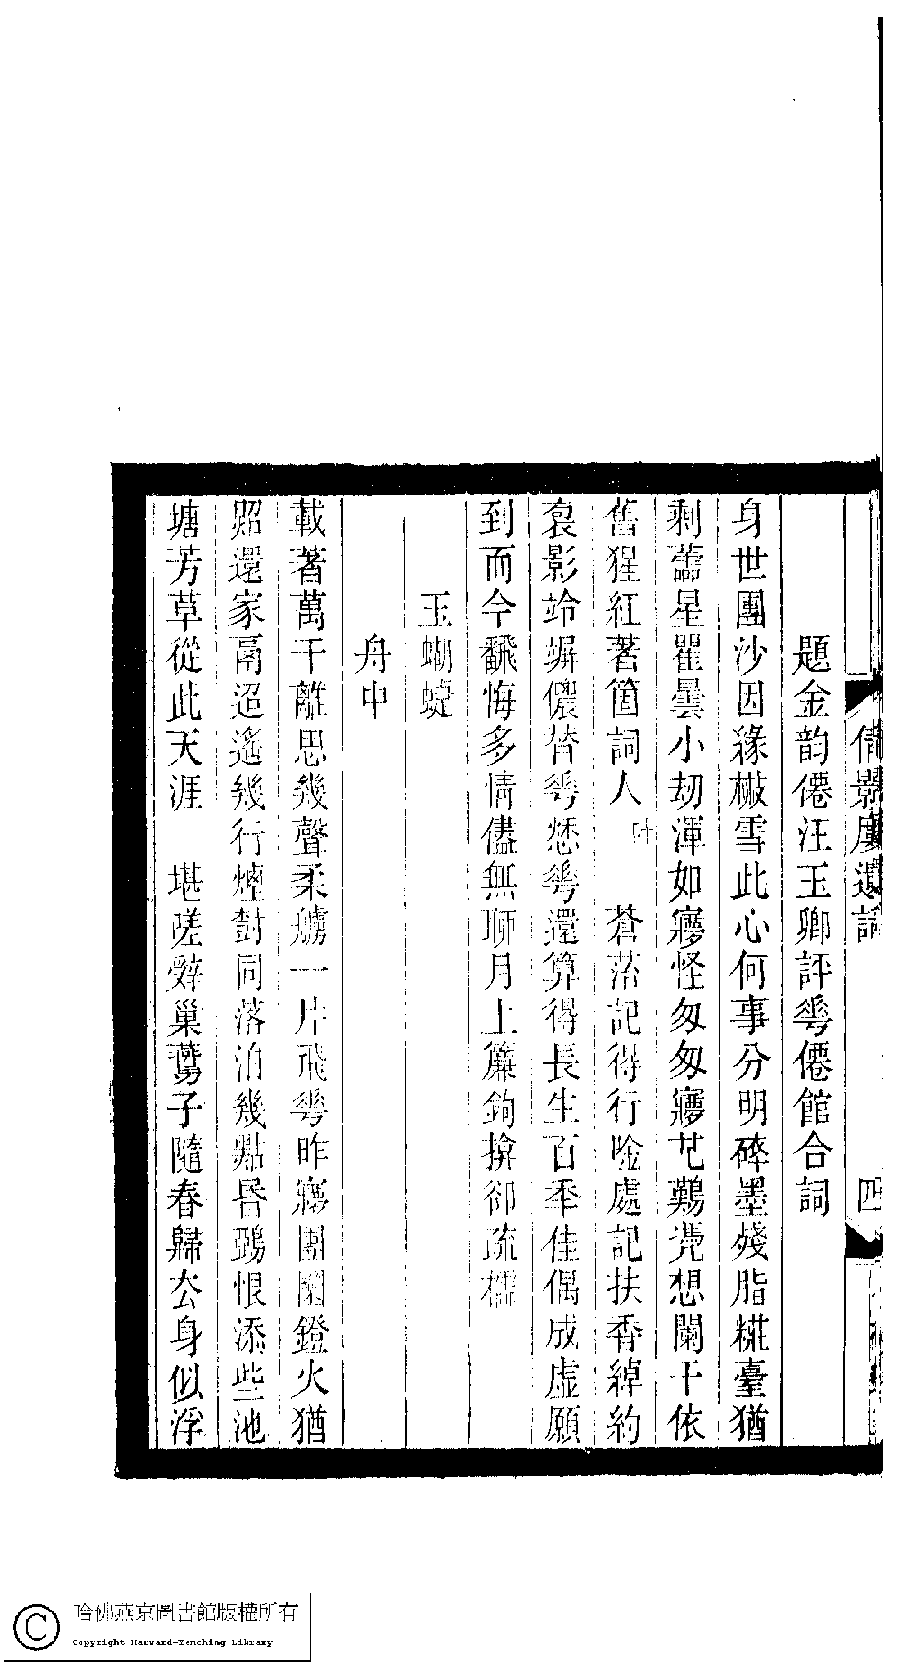 倩景廔遺詞 四
題金韵僊汪玉卿評𠌶僊館合詞
身世團沙因緣樧雪此心何事分明碎墨殘脂糚臺猶
剩蘦星瞿曇小刼渾如㝱怪匆匆㝱也難凭想闌干依
舊猩紅著箇詞人 叶 蒼茫記得行唫處記扶香綽約
裒影竛竮儂替𠌶愁𠌶還算得長生百秊佳偶成虛願
到而今飜悔多情儘無聊月上簾鉤揜卻疏櫺
玉蝴蜨
舟中
載著萬千離思幾聲柔艣一片飛𠌶昨㝱團圞鐙火猶
照還家鬲迢遙幾行煙尌同落泊幾點昏鵶恨添些池
塘芳草從此天涯 堪嗟辤巢鷰子隨春歸厺身似浮
哈佛燕京圖書館版權所有
Copyright Harvard-Yenching Library